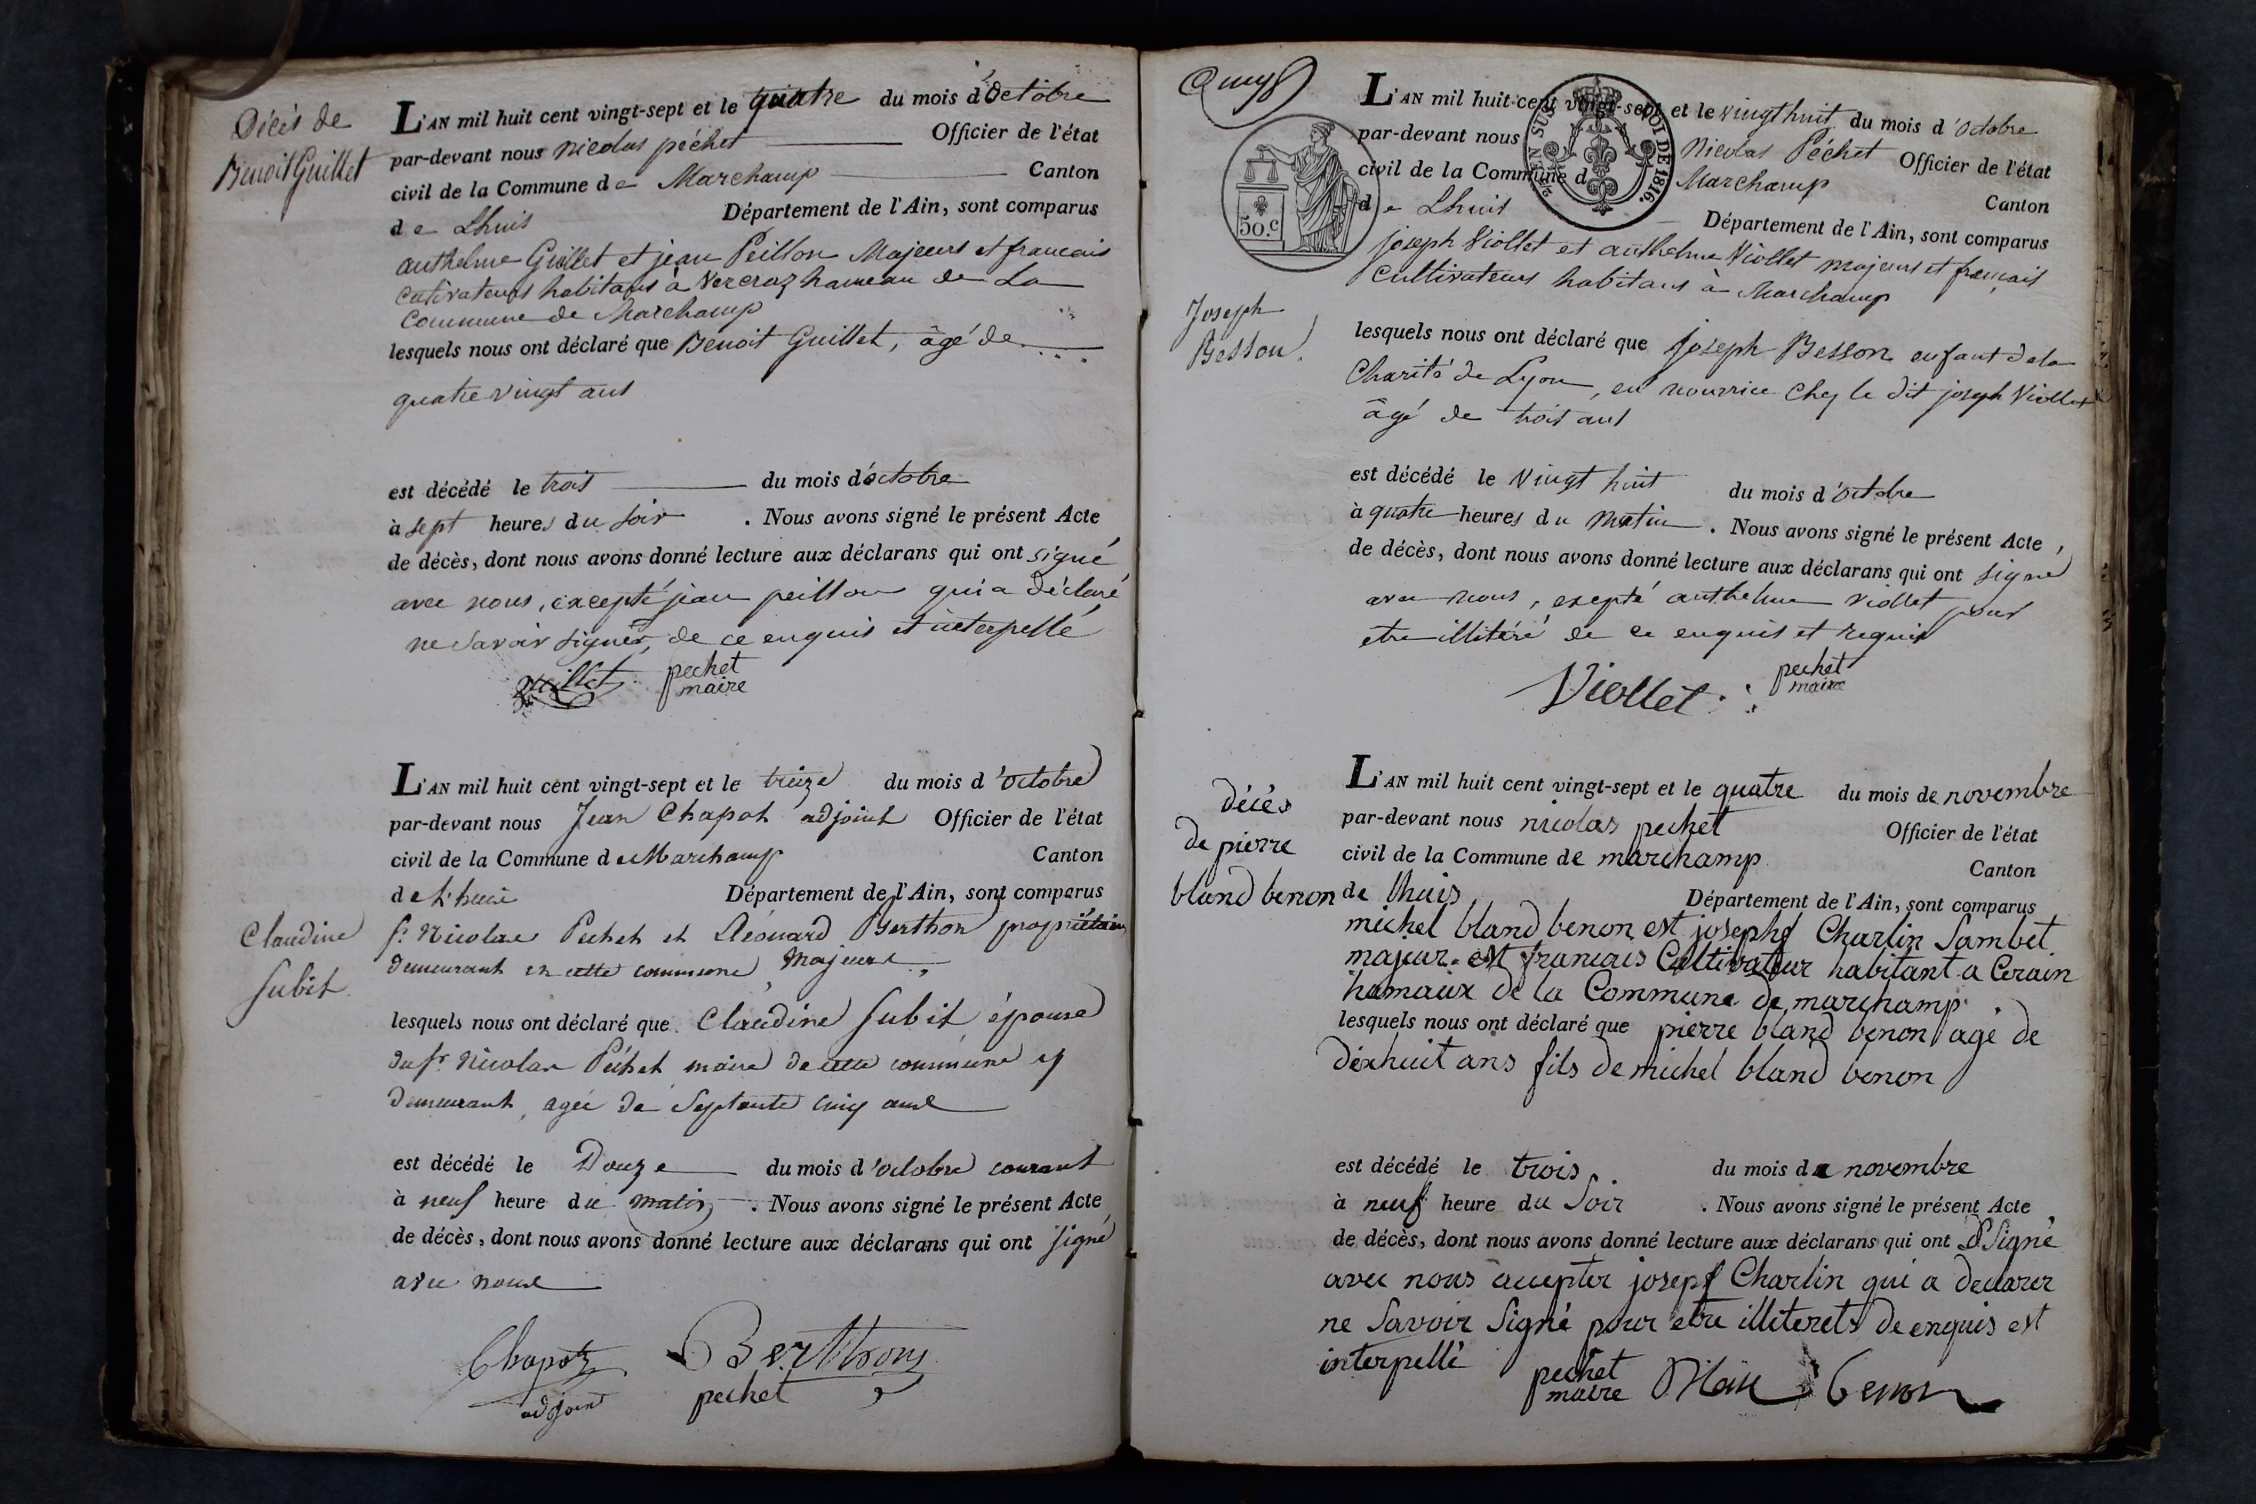 Décès de
Benoit Guillet
L'AN mil huit cent vingt-sept et le quatre du mois d'octobre
par-devant nous nicolas péchet Officier de l'état
civil de la Commune de Marchamp Canton
de Lhuis Département de l'Ain, sont comparus
anthelme Guillet et jean Peillon Majeurs et francais
cultivateurs habitans à Vercraz hameau de La
Commune de Marchamp
lesquels nous ont déclaré que Benoit Guillet, âgé de
quatre vingt ans
est décédé le trois du mois d'octobre
à sept heures du soir . Nous avons signé le présent Acte
de décès, dont nous avons donné lecture aux déclarans qui ont signé
avec nous, excepté jean peillon qui a déclaré
ne savoir signer, de ce enquis et interpellé
Guillet pechet
maire
L'AN mil huit cent vingt-sept et le treize du mois d'octobre
par-devant nous Jean Chapot adjoint Officier de l'état
civil de la Commune de Marchamp Canton
de Lhuis Département de l'Ain, sont comparus
Claudine
Subit
sr. Nicolas Pechet et Léonard Berthon propriétaires
demeurant en cette commune, Majeurs
lesquels nous ont déclaré que Claudine Subit épouse
du sr. Nicolas Péchet maire de cette commune y
demeurant, agée de septante cinq ans
est décédé le Douze du mois d'octobre courant
à neuf heure du matin . Nous avons signé le présent Acte
de décès, dont nous avons donné lecture aux déclarans qui ont signé
avec nous
Chapot Berthon
adjoint pechet
50.c
ROI DE 1816.
L'AN mil huit cent vingt-sept et le vingt huit du mois d'octobre
par-devant nous Nicolas Péchet Officier de l'état
civil de la Commune d Marchamp Canton
de Lhuis Département de l'Ain, sont comparus
joseph Viollet et anthelme Viollet majeurs et français
cultivateurs habitans à Marchamp
Joseph
Besson.
lesquels nous ont déclaré que joseph Besson enfant de la
Charité de Lyon, en nourrice chez le dit joseph Viollet
âgé de trois ans
est décédé le Vingt huit du mois d'octobre
à quatre heures du matin . Nous avons signé le présent Acte
de décès, dont nous avons donné lecture aux déclarans qui ont signé
avec nous, exepté anthelme viollet pour
etre illitéré de ce enquis et requis
Viollet pechet
maire
décés
de pierre
bland benon
L'AN mil huit cent vingt-sept et le quatre du mois de novembre
par-devant nous nicolas pechet Officier de l'état
civil de la Commune de marchamp Canton
de lhuis Département de l'Ain, sont comparus
michel bland benon est joseph Charlin Sambet
majeur est francais Cultivateur habitant a Cerain
hamaux de la Commune de marchamp
lesquels nous ont déclaré que pierre bland benon agé de
dixhuit ans fils de michel bland benon
est décédé le trois du mois de novembre
à neuf heure du Soir . Nous avons signé le présent Acte
de décès, dont nous avons donné lecture aux déclarans qui ont Signé
avec nous accepter josepf Charlin qui a declarer
ne Savoir Signé pour etre illiterets de enquis est
interpellé pechet
maire benon